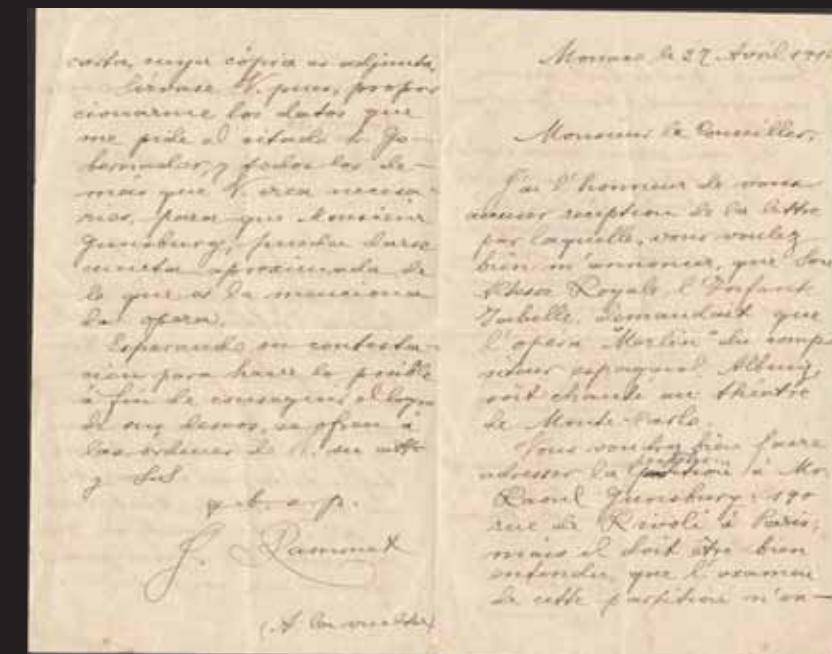 carta, cuya cópia es adjunta.
Sírvase V. pues, propor
cionarme los datos que
me pide el citado Sr. Go-
bernador, y todos los de-
mas que V. crea necesa-
rios, para que Monsieur
Gunsbourg, pueda darse
cuenta aproximada de
lo que es la menciona
da opera.
Esperando su contesta-
cion para hacer lo posible
á fin de conseguir el logro
de sus deseos, se ofrece á
las órdenes de V. su atto
y SS.
q. b. s. m.
J. Ramonet
(A la vuelta)
Monaco le 27 Avril
Monsieur le Conseiller,
J'ai l'honneur de vous
accuser reception de la lettre
par laquelle, vous voulez
bien m'annoncer, que Son
Altesse Royale, l'Infante
Isabelle, demandait que
l'opera "Merlin" du compo
siteur espagnol Albeniz,
soit chanté au théatre
de Monte-Carlo.
Vous voudrez bien faire
adresser la partition à Mr
Raoul Gunsbourg, 190
rue de Rivoli à Paris;
mais il doit être bien
entendu, que l'examen
de cette partition n'en-